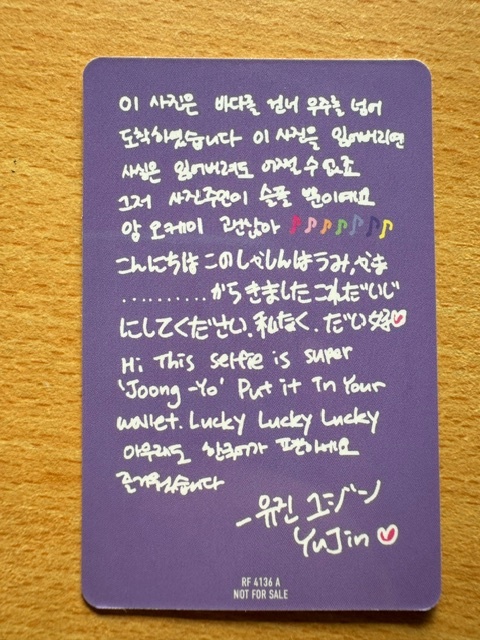 이 사진은 바다를 건너 우주를 넘어
도착하였습니다 이 사진을 잃어버리면
사실은 잃어버려도 어쩔 수 없죠
그저 사진주인이 슬플 뿐이예요
앙 오케이 괜찮아 🎵🎵🎵🎵🎵🎵🎵
こんにちは このしゃしんはうみ、やま
..........からきました これだいじ
にしてください、私なく、だい好♡
Hi This selfie is super
'Joong-Yo' Put it In Your
wallet. Lucky Lucky Lucky
아무래도 한국어가 편하네요
즐거웠습니다
-유진 ユジン
YuJin ♡
RF 4136 A
NOT FOR SALE